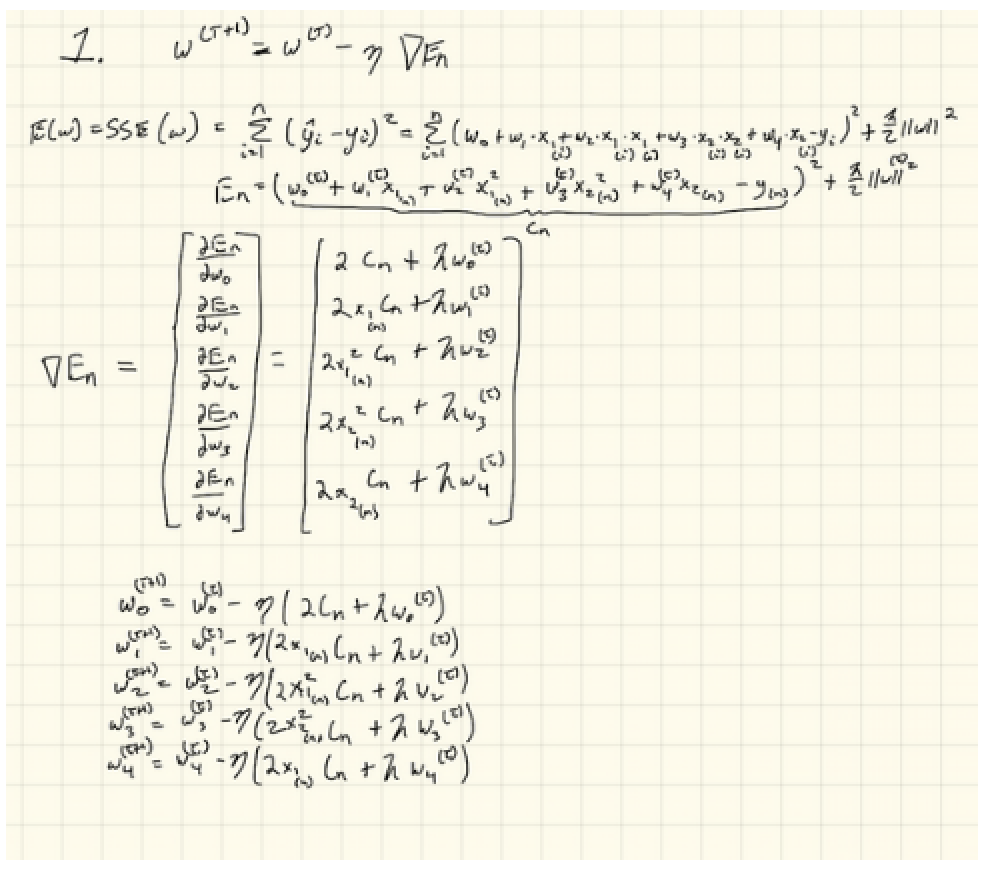 1. w^(τ+1) = w^(τ) − η ∇E_n
E(w) = SSE(w) = Σ_{i=1}^{n} (ŷ_i − y_i)² = Σ_{i=1}^{n} (w_0 + w_1·x_1(i) + w_2·x_1(i)·x_1(i) + w_3·x_2(i)·x_2(i) + w_4·x_2(i) − y_i)² + λ/2 ||w||²
E_n = (w_0^(τ) + w_1^(τ) x_1(n) + w_2^(τ) x_1(n)² + w_3^(τ) x_2(n)² + w_4^(τ) x_2(n) − y(n))² + λ/2 ||w||^(τ)²
C_n
∇E_n = [∂E_n/∂w_0 ∂E_n/∂w_1 ∂E_n/∂w_2 ∂E_n/∂w_3 ∂E_n/∂w_4] = [2 C_n + λw_0^(τ)
2x_1(n) C_n + λw_1^(τ)
2x_1(n)² C_n + λw_2^(τ)
2x_2(n)² C_n + λw_3^(τ)
2x_2(n) C_n + λw_4^(τ)]
w_0^(τ+1) = w_0^(τ) − η(2C_n + λw_0^(τ))
w_1^(τ+1) = w_1^(τ) − η(2x_1(n) C_n + λw_1^(τ))
w_2^(τ+1) = w_2^(τ) − η(2x_1(n)² C_n + λw_2^(τ))
w_3^(τ+1) = w_3^(τ) − η(2x_2(n)² C_n + λw_3^(τ))
w_4^(τ+1) = w_4^(τ) − η(2x_1(n) C_n + λw_4^(τ))